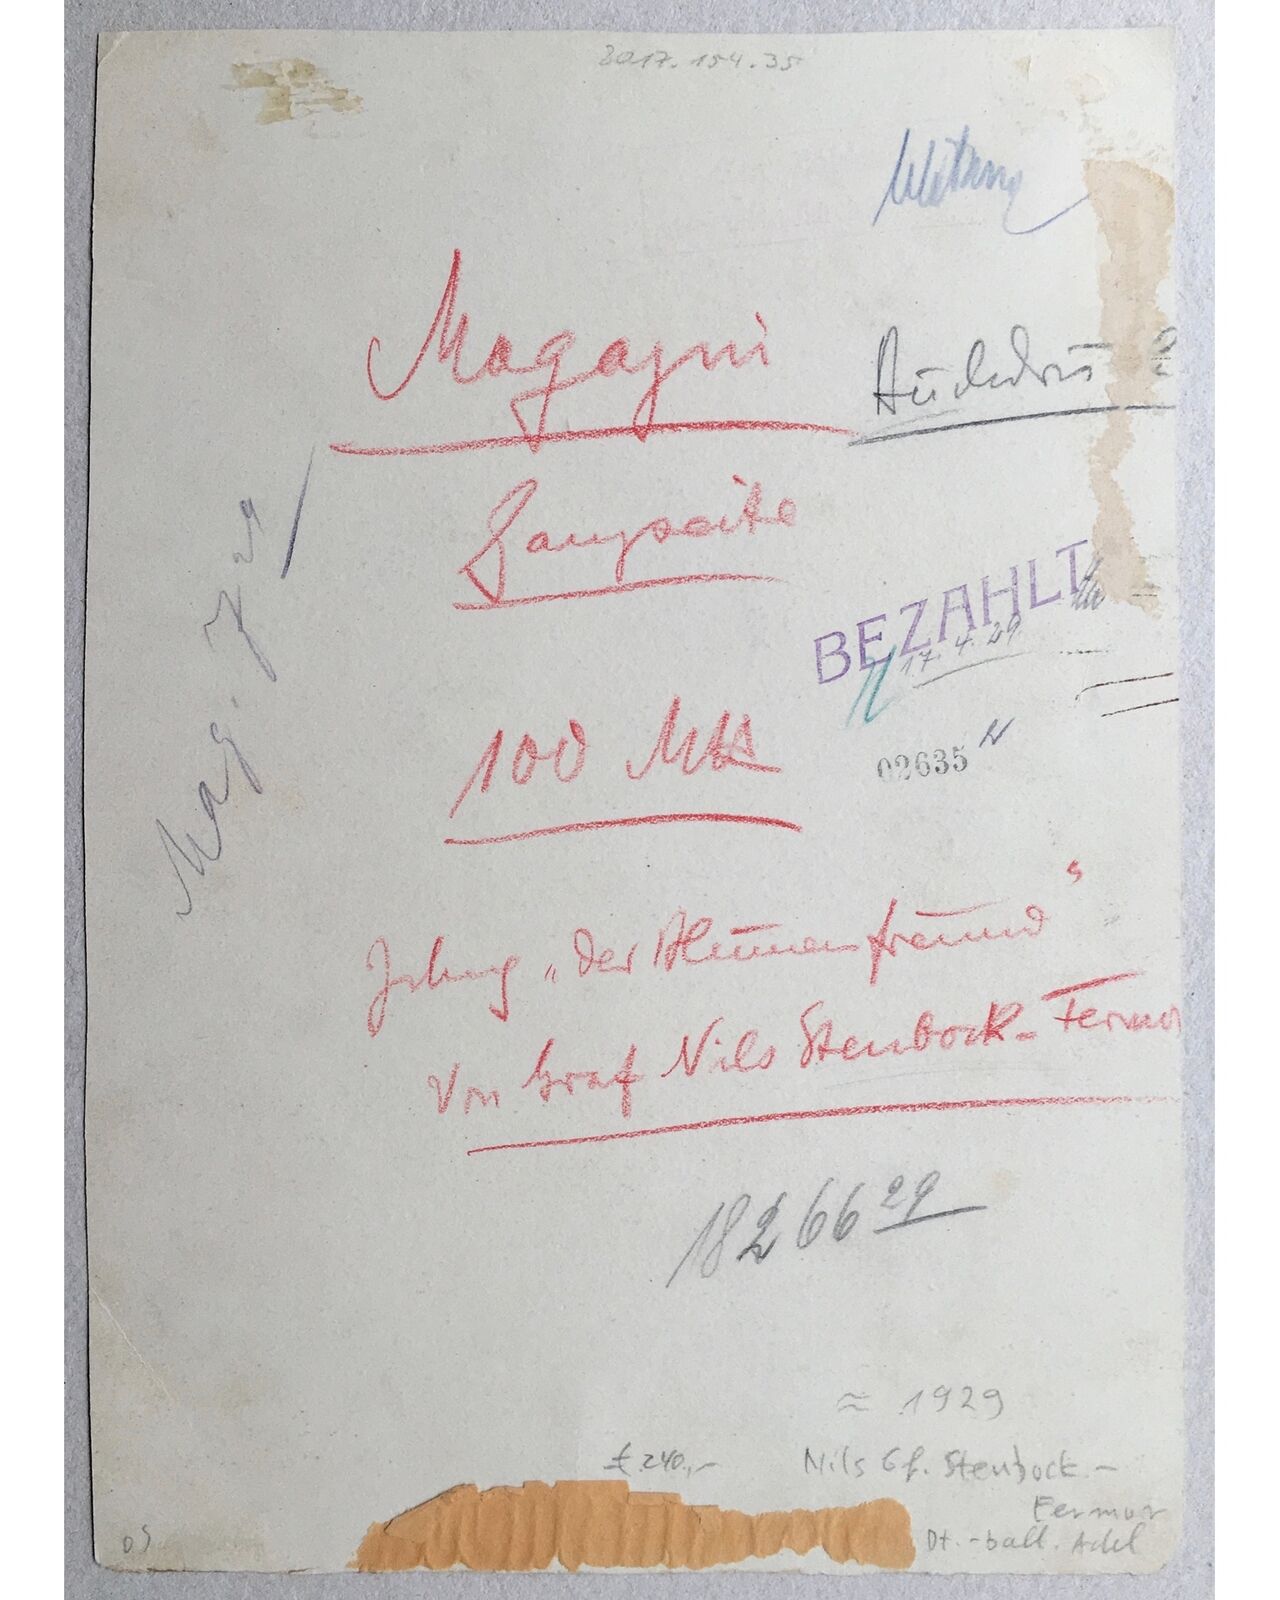 2017.154.35
Magazin
Ganzseite
Mag. 7 29
BEZAHLT
17.4.29
100 Mk
02635
Zchng „der Blumenfreund“
Von Graf Nils Stenbock-Fermor
18266 29
≈ 1929
€ 240,-
Nils Gf. Stenbock-
Fermor
Dt.-balt. Adel